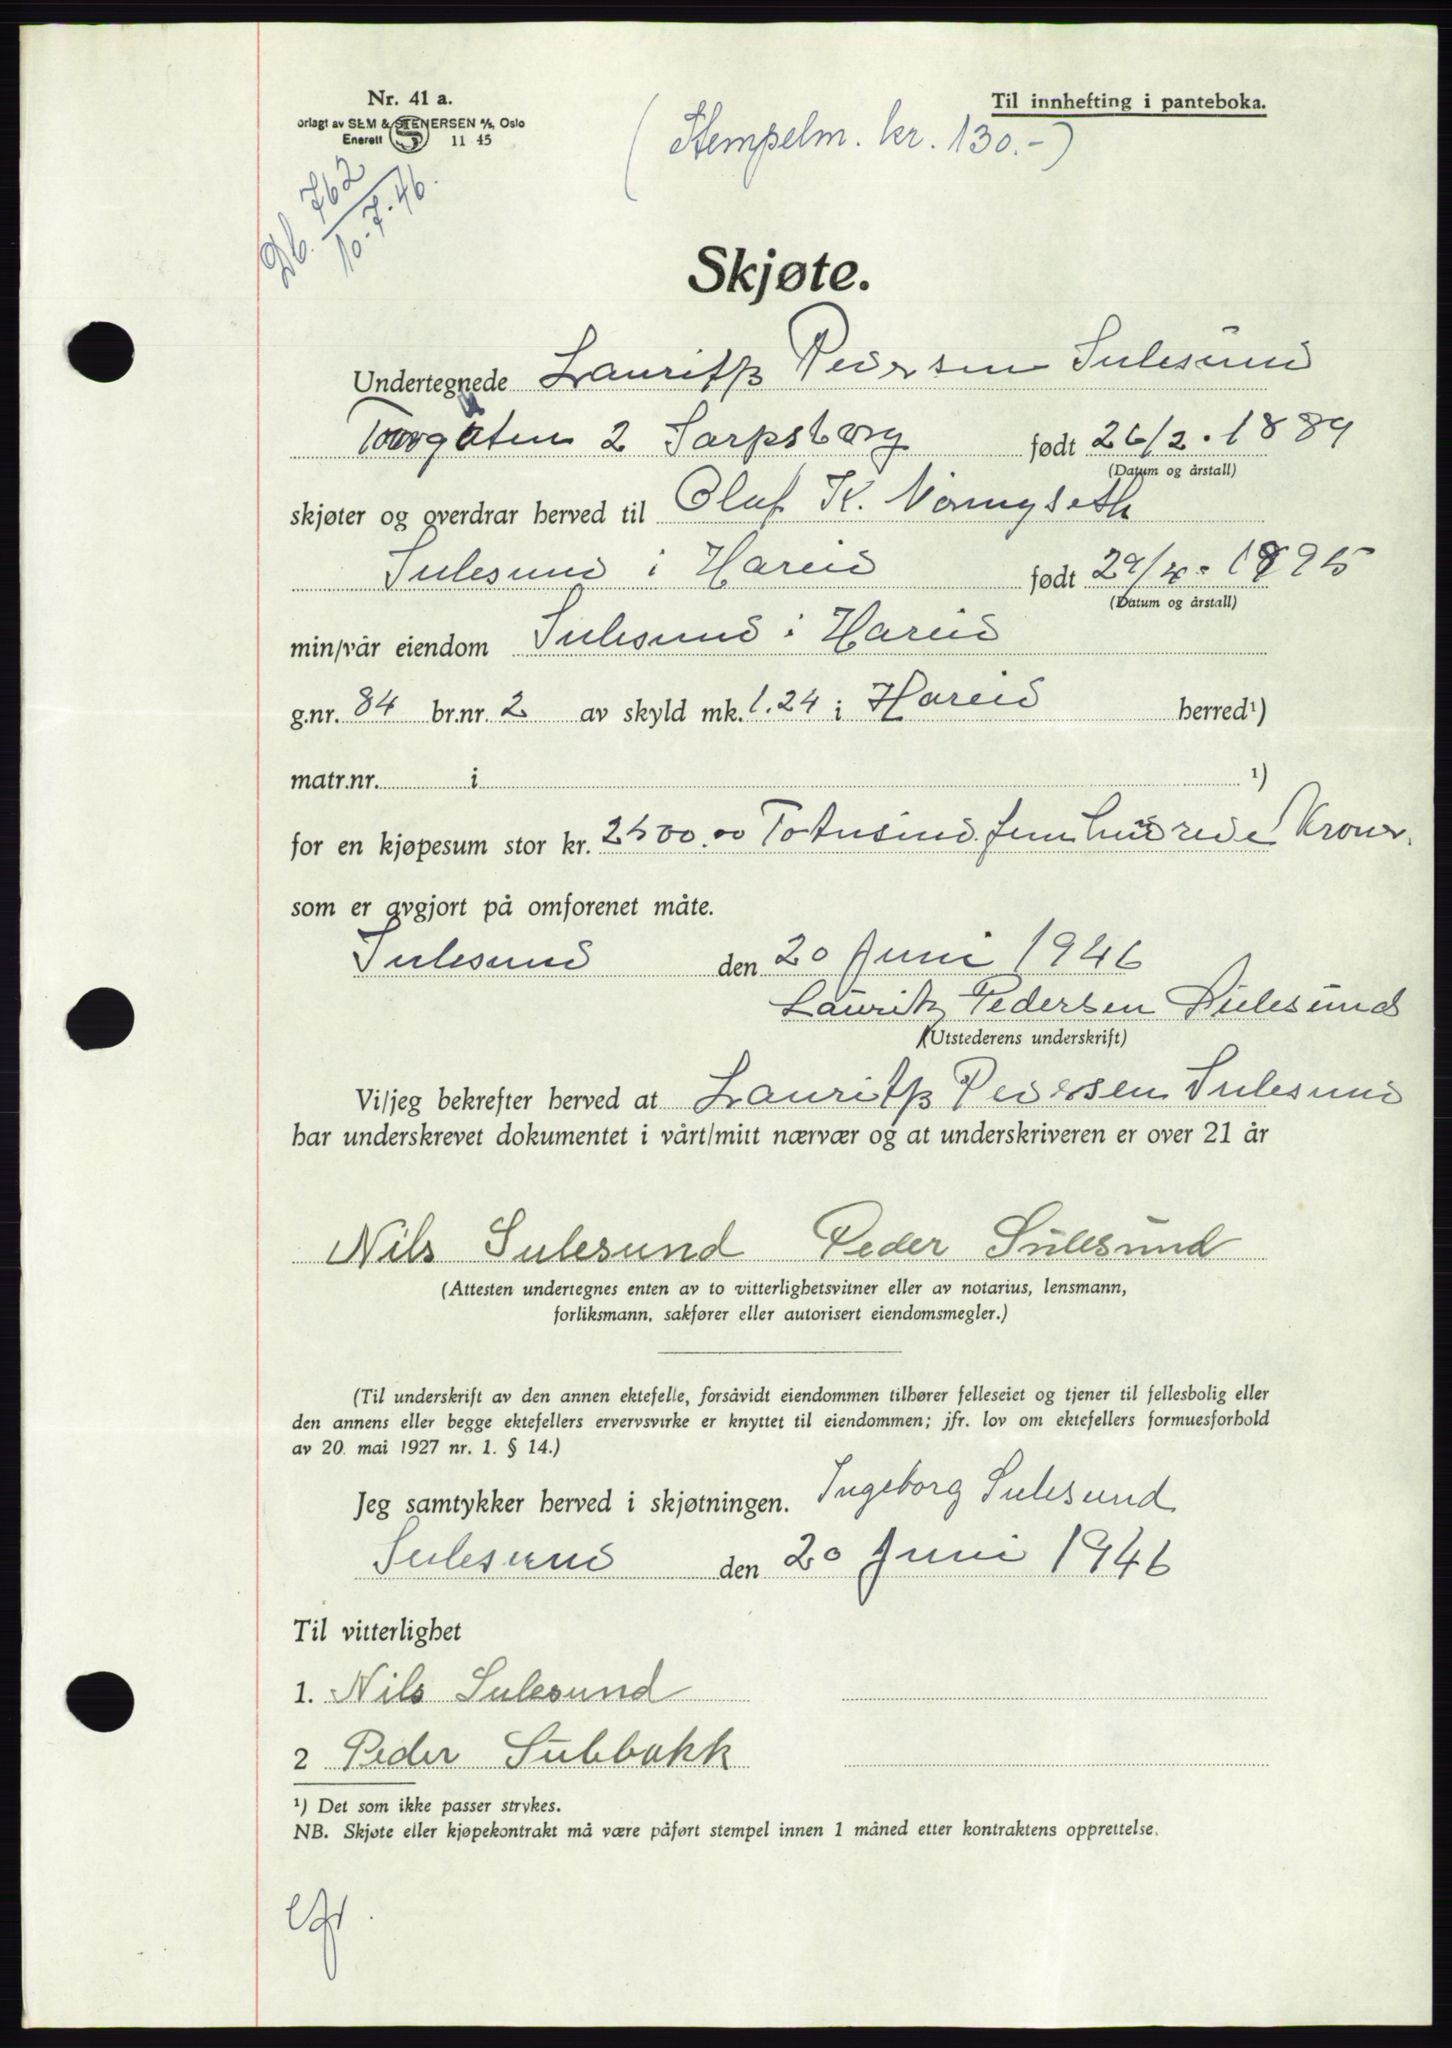 Nr. 41 a.
orlagt av SEM & STENERSEN A/S, Oslo
Enerett 11 45
Til innhefting i panteboka.
(Stempelm. kr. 130.-)
Db. 762
10-7-46.
Skjøte.
Undertegnede Lauritz Pedersen Sulesund
2 Sarpsborg født 26/2 . 1889
(Datum og årstall)
skjøter og overdrar herved til Olaf K.
Sulesund i Hareid født 29/4 - 1895
(Datum og årstall)
min/vår eiendom Sulesund i Hareid
g.nr. 84 br.nr. 2 av skyld mk. 1.24 i Hareid herred¹)
matr.nr. i ¹)
for en kjøpesum stor kr. 2500.00 Totusind femhundrede Kroner.
som er avgjort på omforenet måte.
Sulesund den 20 Juni 1946
Lauritz Pedersen Sulesund
(Utstederens underskrift)
Vi/jeg bekrefter herved at Lauritz Pedersen Sulesund
har underskrevet dokumentet i vårt/mitt nærvær og at underskriveren er over 21 år
Nils Sulesund Peder Sulesund
(Attesten undertegnes enten av to vitterlighetsvitner eller av notarius, lensmann,
forliksmann, sakfører eller autorisert eiendomsmegler.)
(Til underskrift av den annen ektefelle, forsåvidt eiendommen tilhører felleseiet og tjener til fellesbolig eller
den annens eller begge ektefellers ervervsvirke er knyttet til eiendommen; jfr. lov om ektefellers formuesforhold
av 20. mai 1927 nr. 1. § 14.)
Jeg samtykker herved i skjøtningen. Ingeborg Sulesund
Sulesund den 20 Juni 1946
Til vitterlighet
1. Nils Sulesund
2 Peder Sulebakk
¹) Det som ikke passer strykes.
NB. Skjøte eller kjøpekontrakt må være påført stempel innen 1 måned etter kontraktens opprettelse.